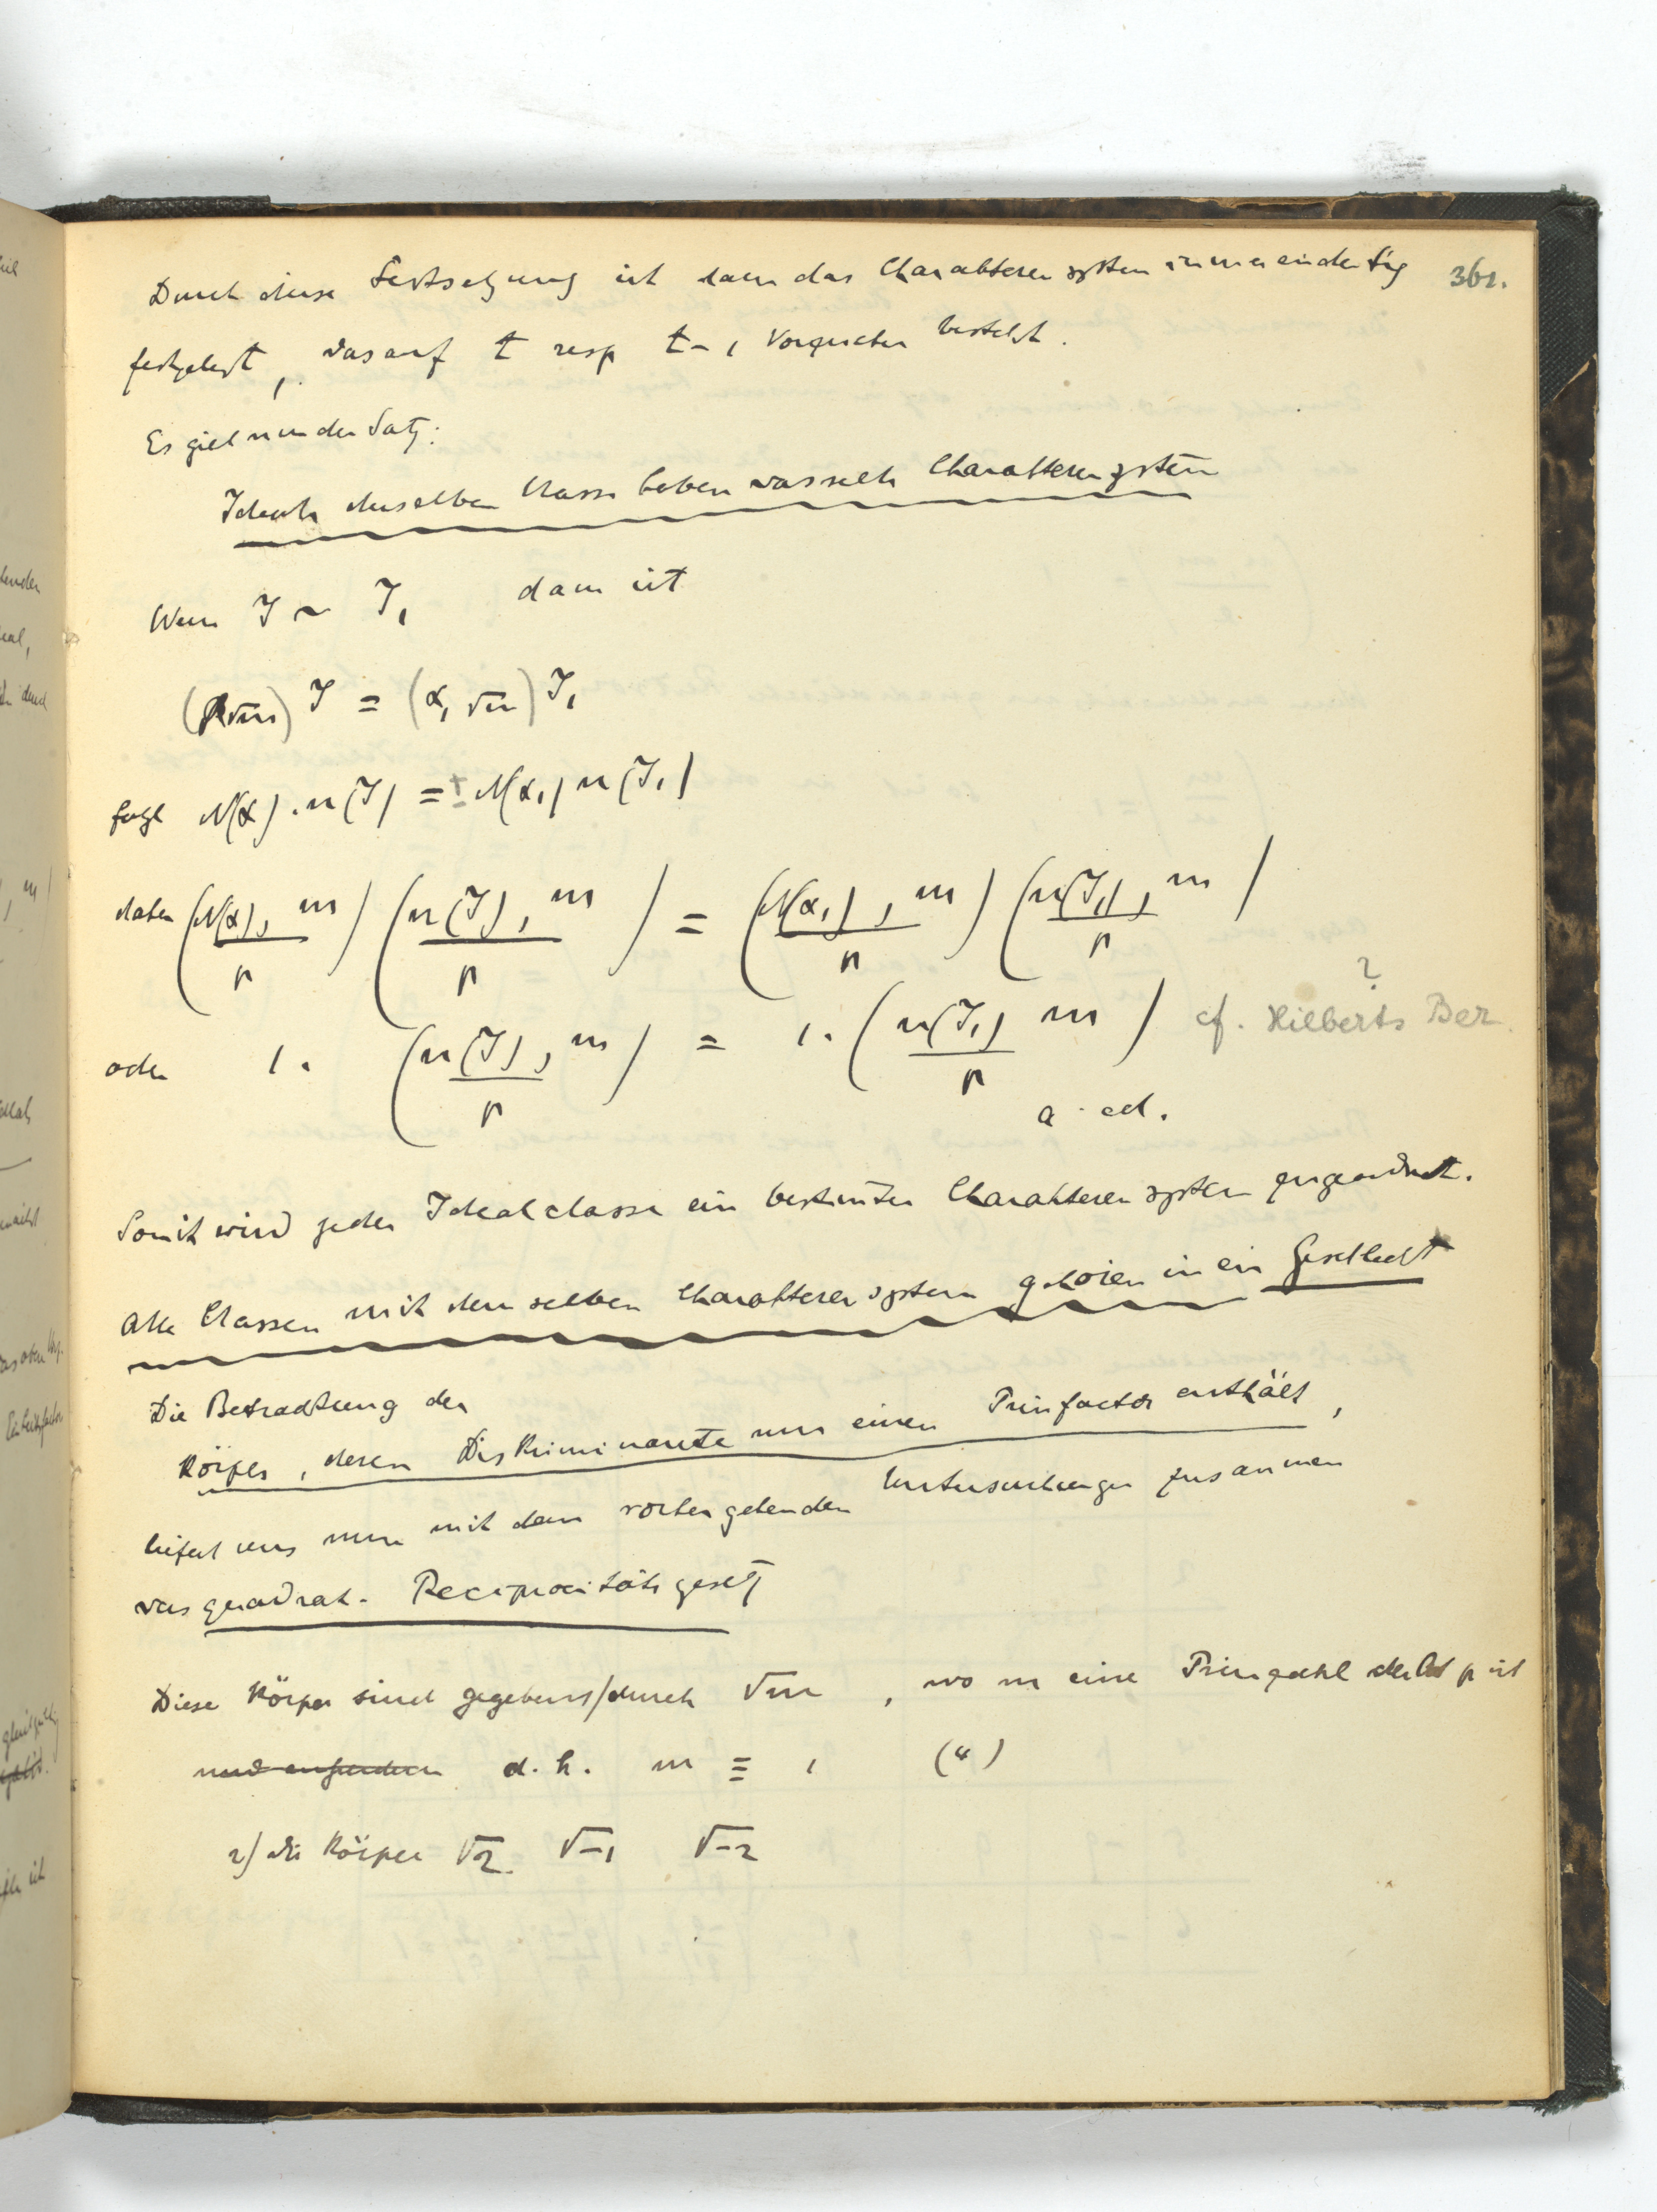 361.
Durch diese Festsetzung ist dann das Charakterensystem immer eindeutig
festgelegt, das auf t resp t-1 Vorzeichen besteht.
Es giebt nun der Satz:
Ideale derselben Classe haben dasselbe Charakterensystem
Wenn J ~ J₁ dann ist
(α, √m) J = (α₁ √m) J₁
folgt N(α) . n(J) = ± N(α₁) n(J₁)
daher (N(α), m / p) (n(J), m / p) = (N(α₁), m / p) (n(J₁), m / p)
?
oder 1. (n(J), m / p) = 1. (n(J₁) m / p) cf. Hilberts Ber.
q. ed.
Somit wird jeder Idealclasse ein bestimtes Charakterensystem zugeordnet.
Alle Classen mit demselben Charakterensystem gehören in ein Geschlecht
Die Betrachtung der
Körper, deren Diskriminante nur einen Primfactor enthält,
liefert uns nun mit den vorhergehenden Untersuchungen zusammen
das quadrat. Reciprocitätsgesetz
Diese Körper sind gegeben 1) durch √m, wo m eine Primzahl der Art p ist
und ausserdem d. h. m ≡ 1 (4)
2) die Körper √2 √-1 √-2